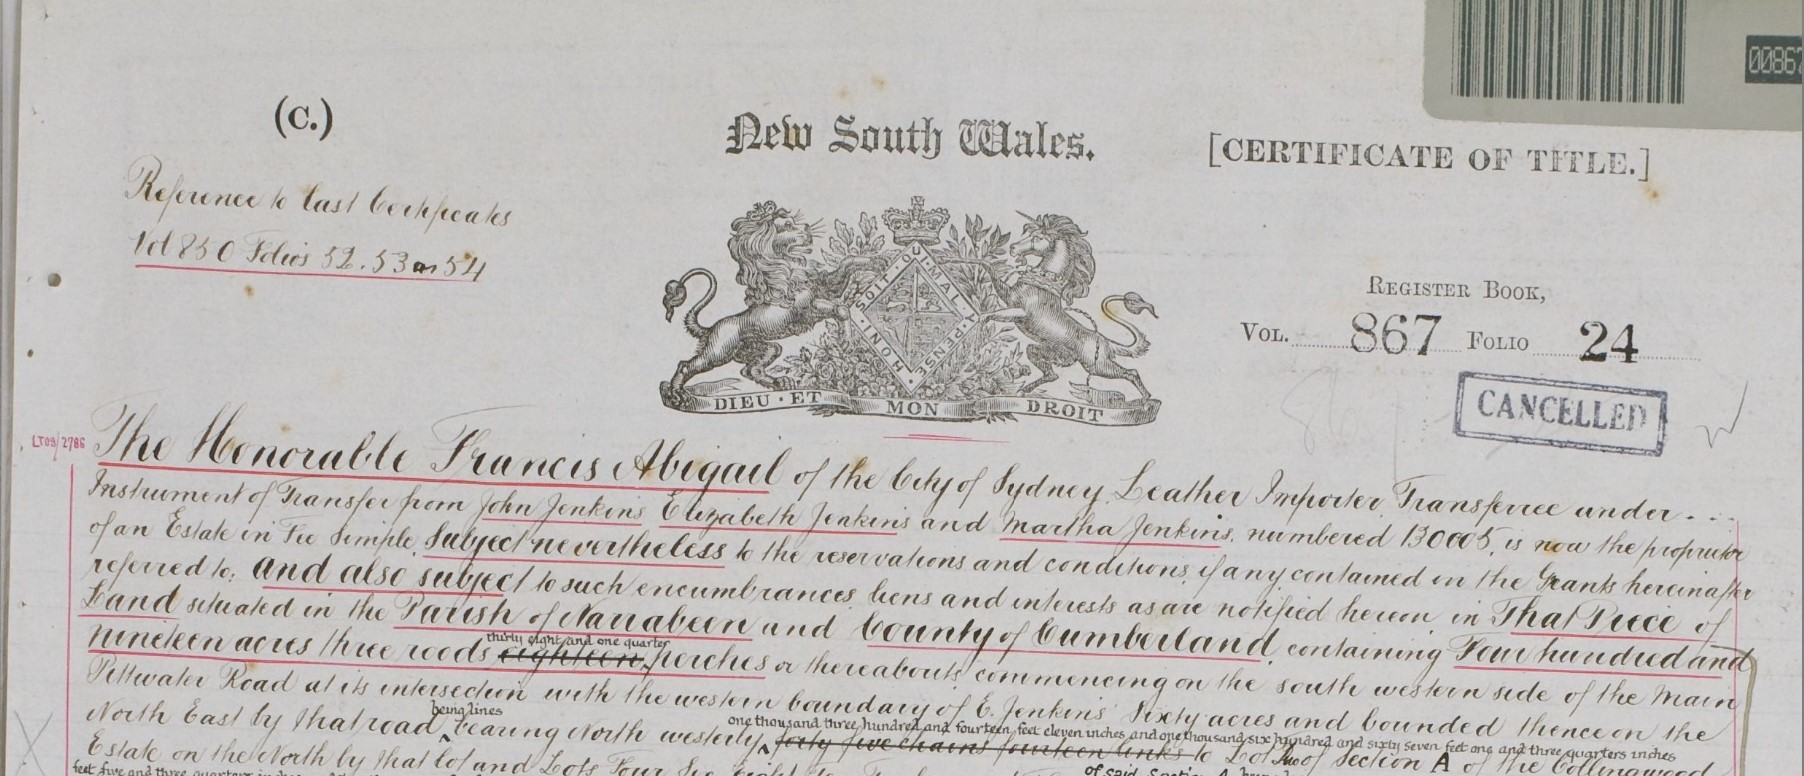 0086
(C.)
New South Wales.
[CERTIFICATE OF TITLE.]
Reference to Last Certificates
Vol 850 Folios 52. 53 or 54
HONI · SOIT · QUI · MAL · Y · PENSE
DIEU · ET MON DROIT
REGISTER BOOK,
VOL. 867 FOLIO 24
CANCELLED
LTO9/2786
The Honorable Francis Abigail of the City of Sydney Leather Importer, Transferree under
Instrument of Transfer from John Jenkins Elizabeth Jenkins and Martha Jenkins, numbered 130005, is now the proprietor
of an Estate in Fee Simple, Subject nevertheless to the reservations and conditions, if any contained in the Grants hereinafter
referred to; and also subject to such encumbrances liens and interests as are notified hereon in That Piece of
Land situated in the Parish of Narrabeen and County of Cumberland, containing Four hundred and
thirty eight and one quarter
nineteen acres three roods eighteen perches or thereabouts commencing on the south western side of the Main
Pittwater Road at its intersection with the western boundary of E. Jenkins' Sixty acres and bounded thence on the
being lines
North East by that road bearing North westerly
one thousand three hundred and fourteen feet eleven inches and one thousand six hundred and sixty seven feet one and three quarters inches
forty five chains fourteen links to Lot Two of Section A of the Collingwood
Estate on the North by that lot and Lots Four Six Eight
of said Section A
feet five and three quarters